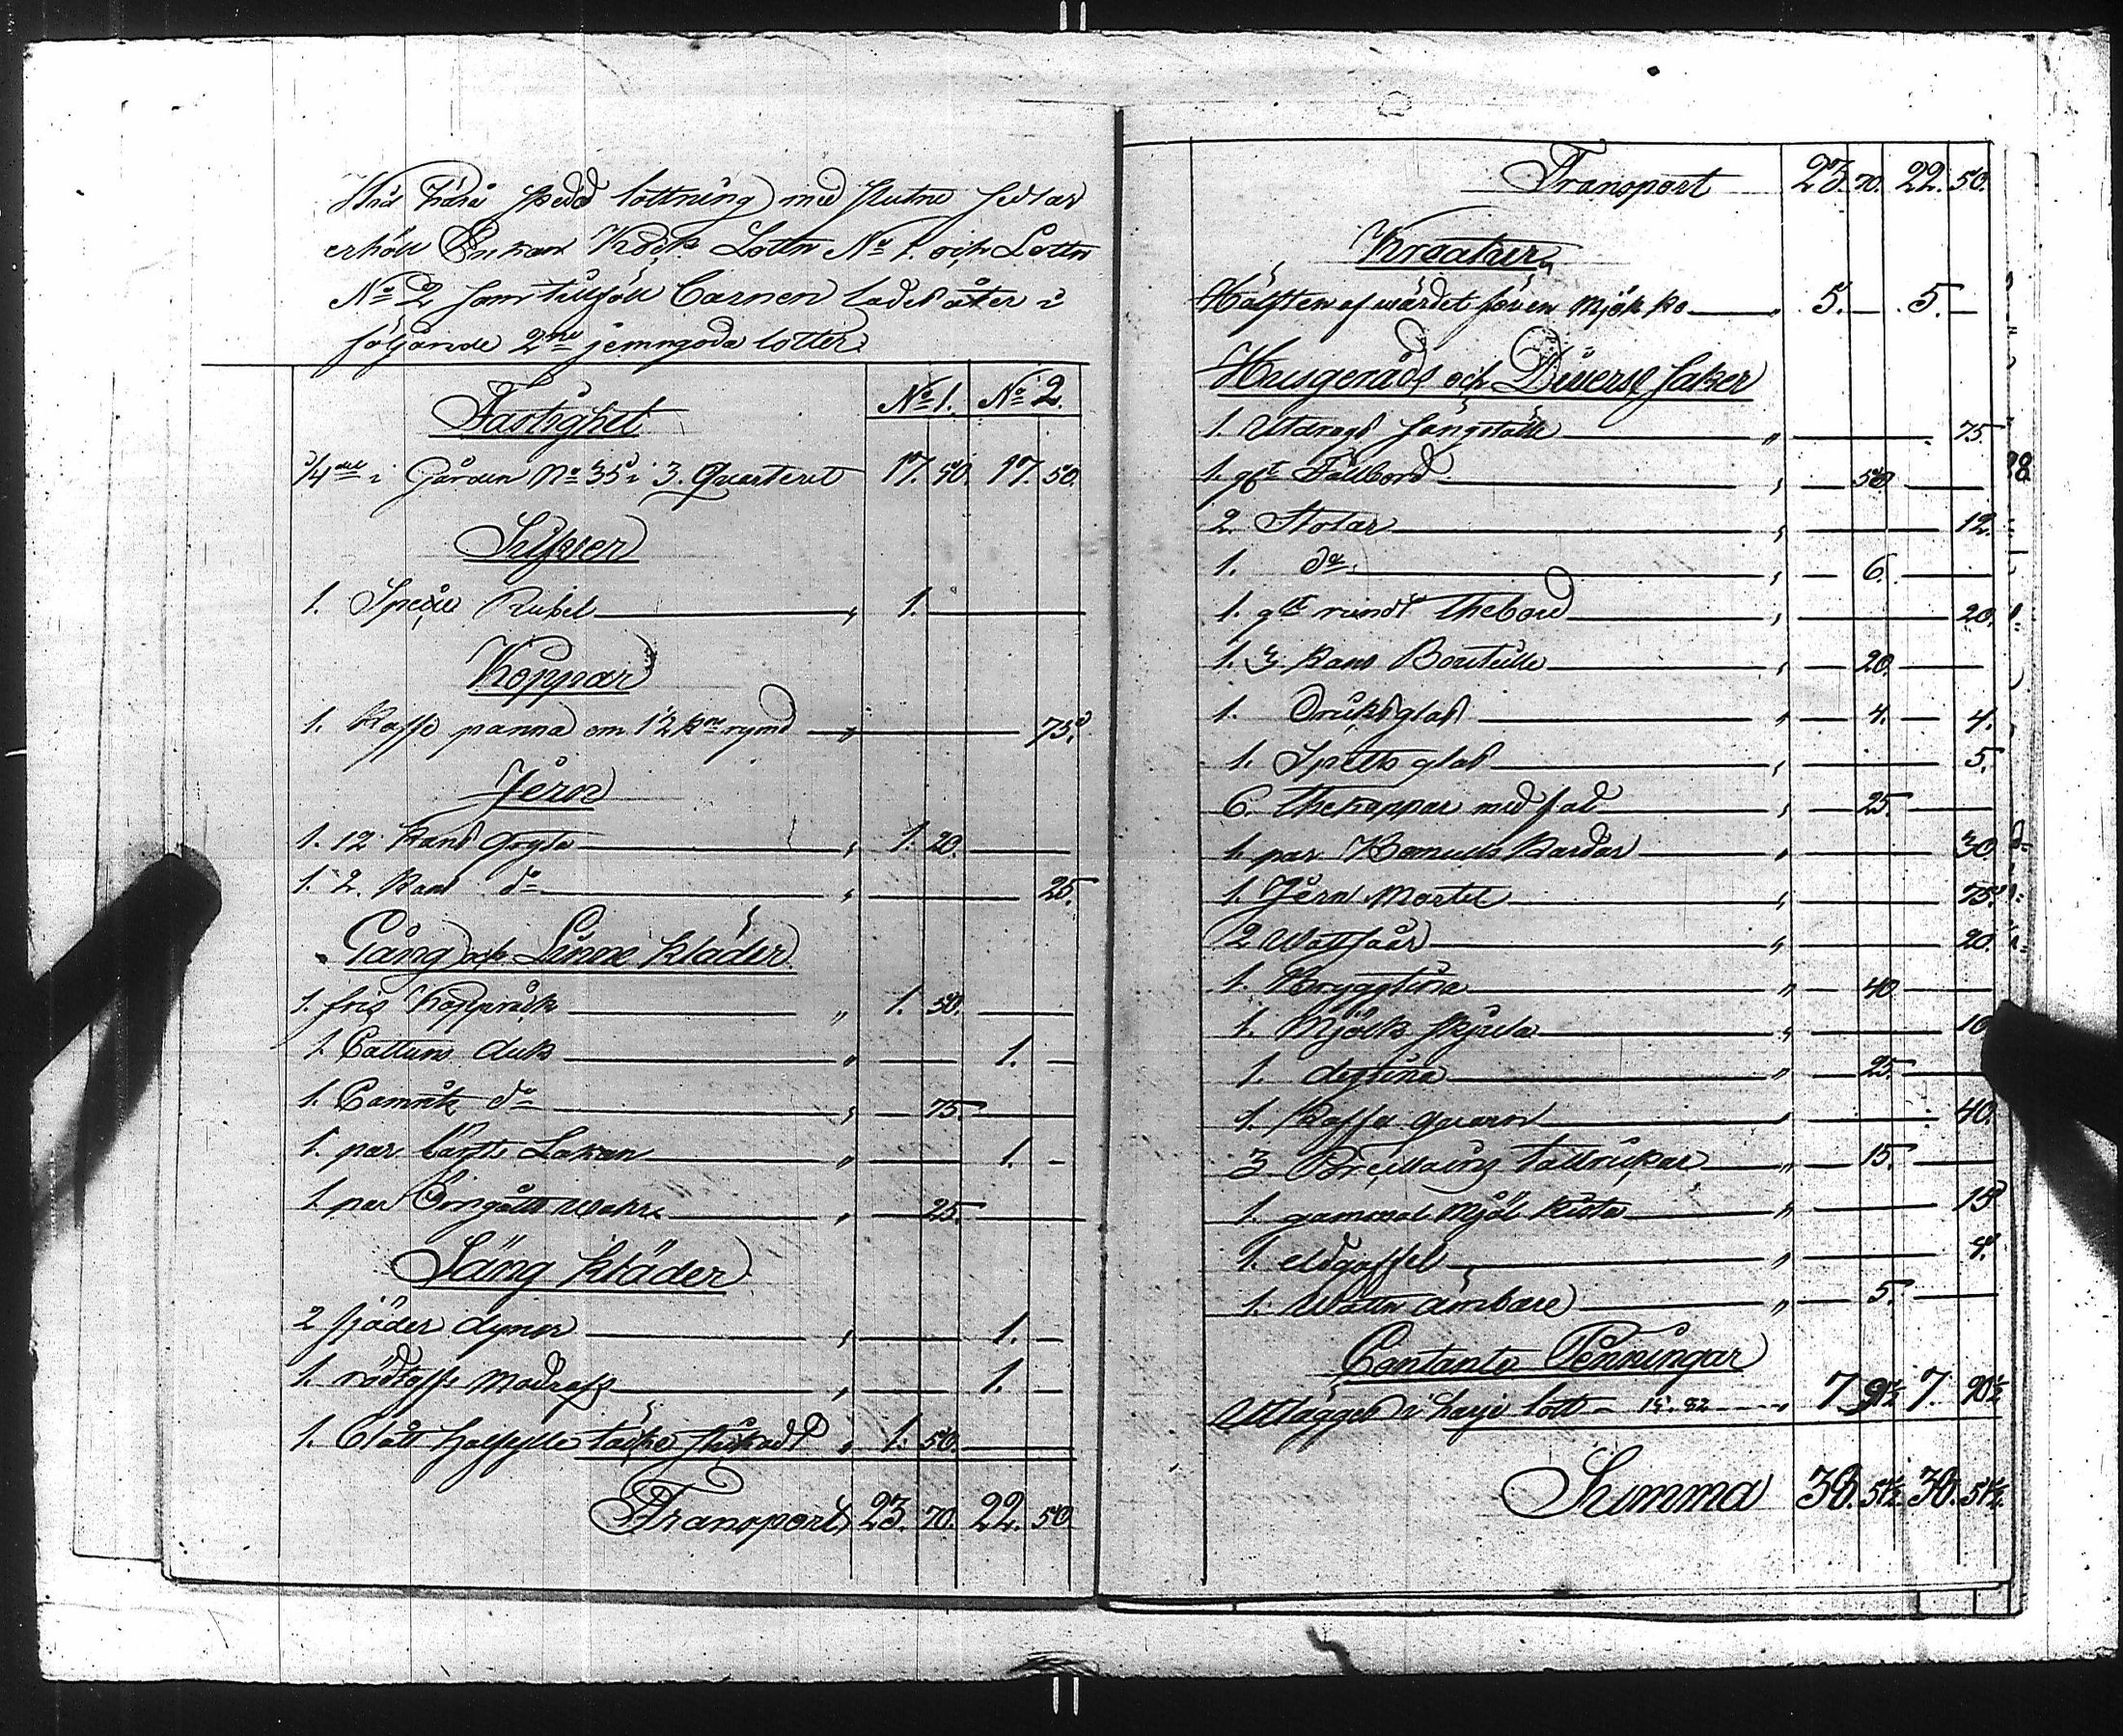 Wid härå skedd lottning med slutne sedlar
erhöll Enkan Kock Lotten No 1. och Lotten
No 2 som tillföll Barnen lades åter i
följande 2ne jemngoda lotter.
No 1. No 2.
Fastighet
i Gården No 35 i 3. Quarteret 17. 50. 17. 50.
Silfver
1. Specie Rubel " 1.
Koppar
1. Kaffe panna om 12 kprs rymd " 75.
Jern
1. 12 kans Gryta " 1. 20.
1. 2. kans do " 25.
Gång och Linne kläder
1. fris Kappråck " 1. 50.
1. Cattuns duk " 1. –
1. Camrits do " 75.
1. par Lakan " 1. –
1. par Örngåtts " 25.
Säng kläder
2 fjäder dynor " 1. –
1. Madrass " 1. –
1. Blått täcke " 1. 50.
Transport 23. 70. 22. 50.
Transport 23. 70. 22. 50.
Kreatur
Hälften af wärdet för en Mjölk ko " 5. – 5. –
Husgeråds och Diverse saker
1. Utdrags sängställe " 75.
1. Fällbord " 50.
2. Stolar " 12.
1. do " 6.
1. rundt Thebord " 20.
1. 3. kans Bouteille " 20.
1. glas " 4. 4.
1. Spetts glas " 5.
6. thekoppar med fat " 25.
1. par Kardor " 30
1. Jern Mortel " 75.
2 Wattsåår " 20.
1. Bryggtina " 40
1. Mjölk skjula " 10
1. degtina " 25.
1. Kaffe quarn " 40.
3 Porcellains tallrickar " 15.
1. gammal Mjöl kista " 15
1. eldgaffel " 4.
1. Watten ämbare " 5.
Contante Penningar
Utlägges i hvarje lott – 15. 82 7 91 7. 90½
Summa 38. 51½ 38. 51½